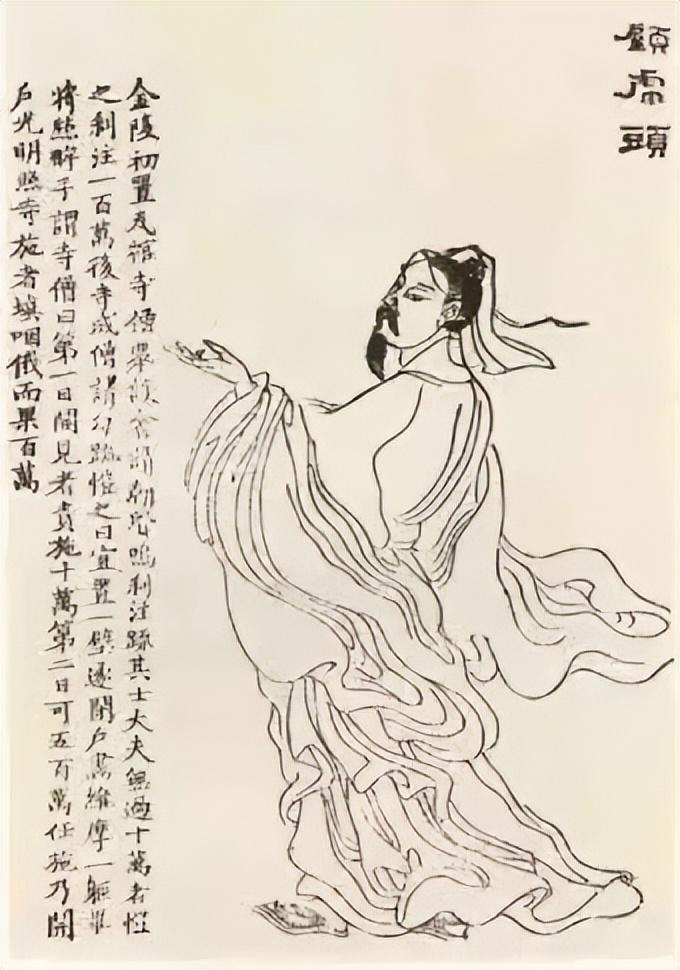 顧虎頭
金陵初置瓦棺寺僧眾設請朝賢鳴刹注踈其士大夫無過十萬者愷
之刹注一百萬後寺成僧請勾踈愷之曰宜置一壁遂閉戶畫維摩一軀
將點眸子謂寺僧曰第一日開見者責施十萬第二日可五百萬任施乃開
戶光明照寺施者填咽俄而果百萬